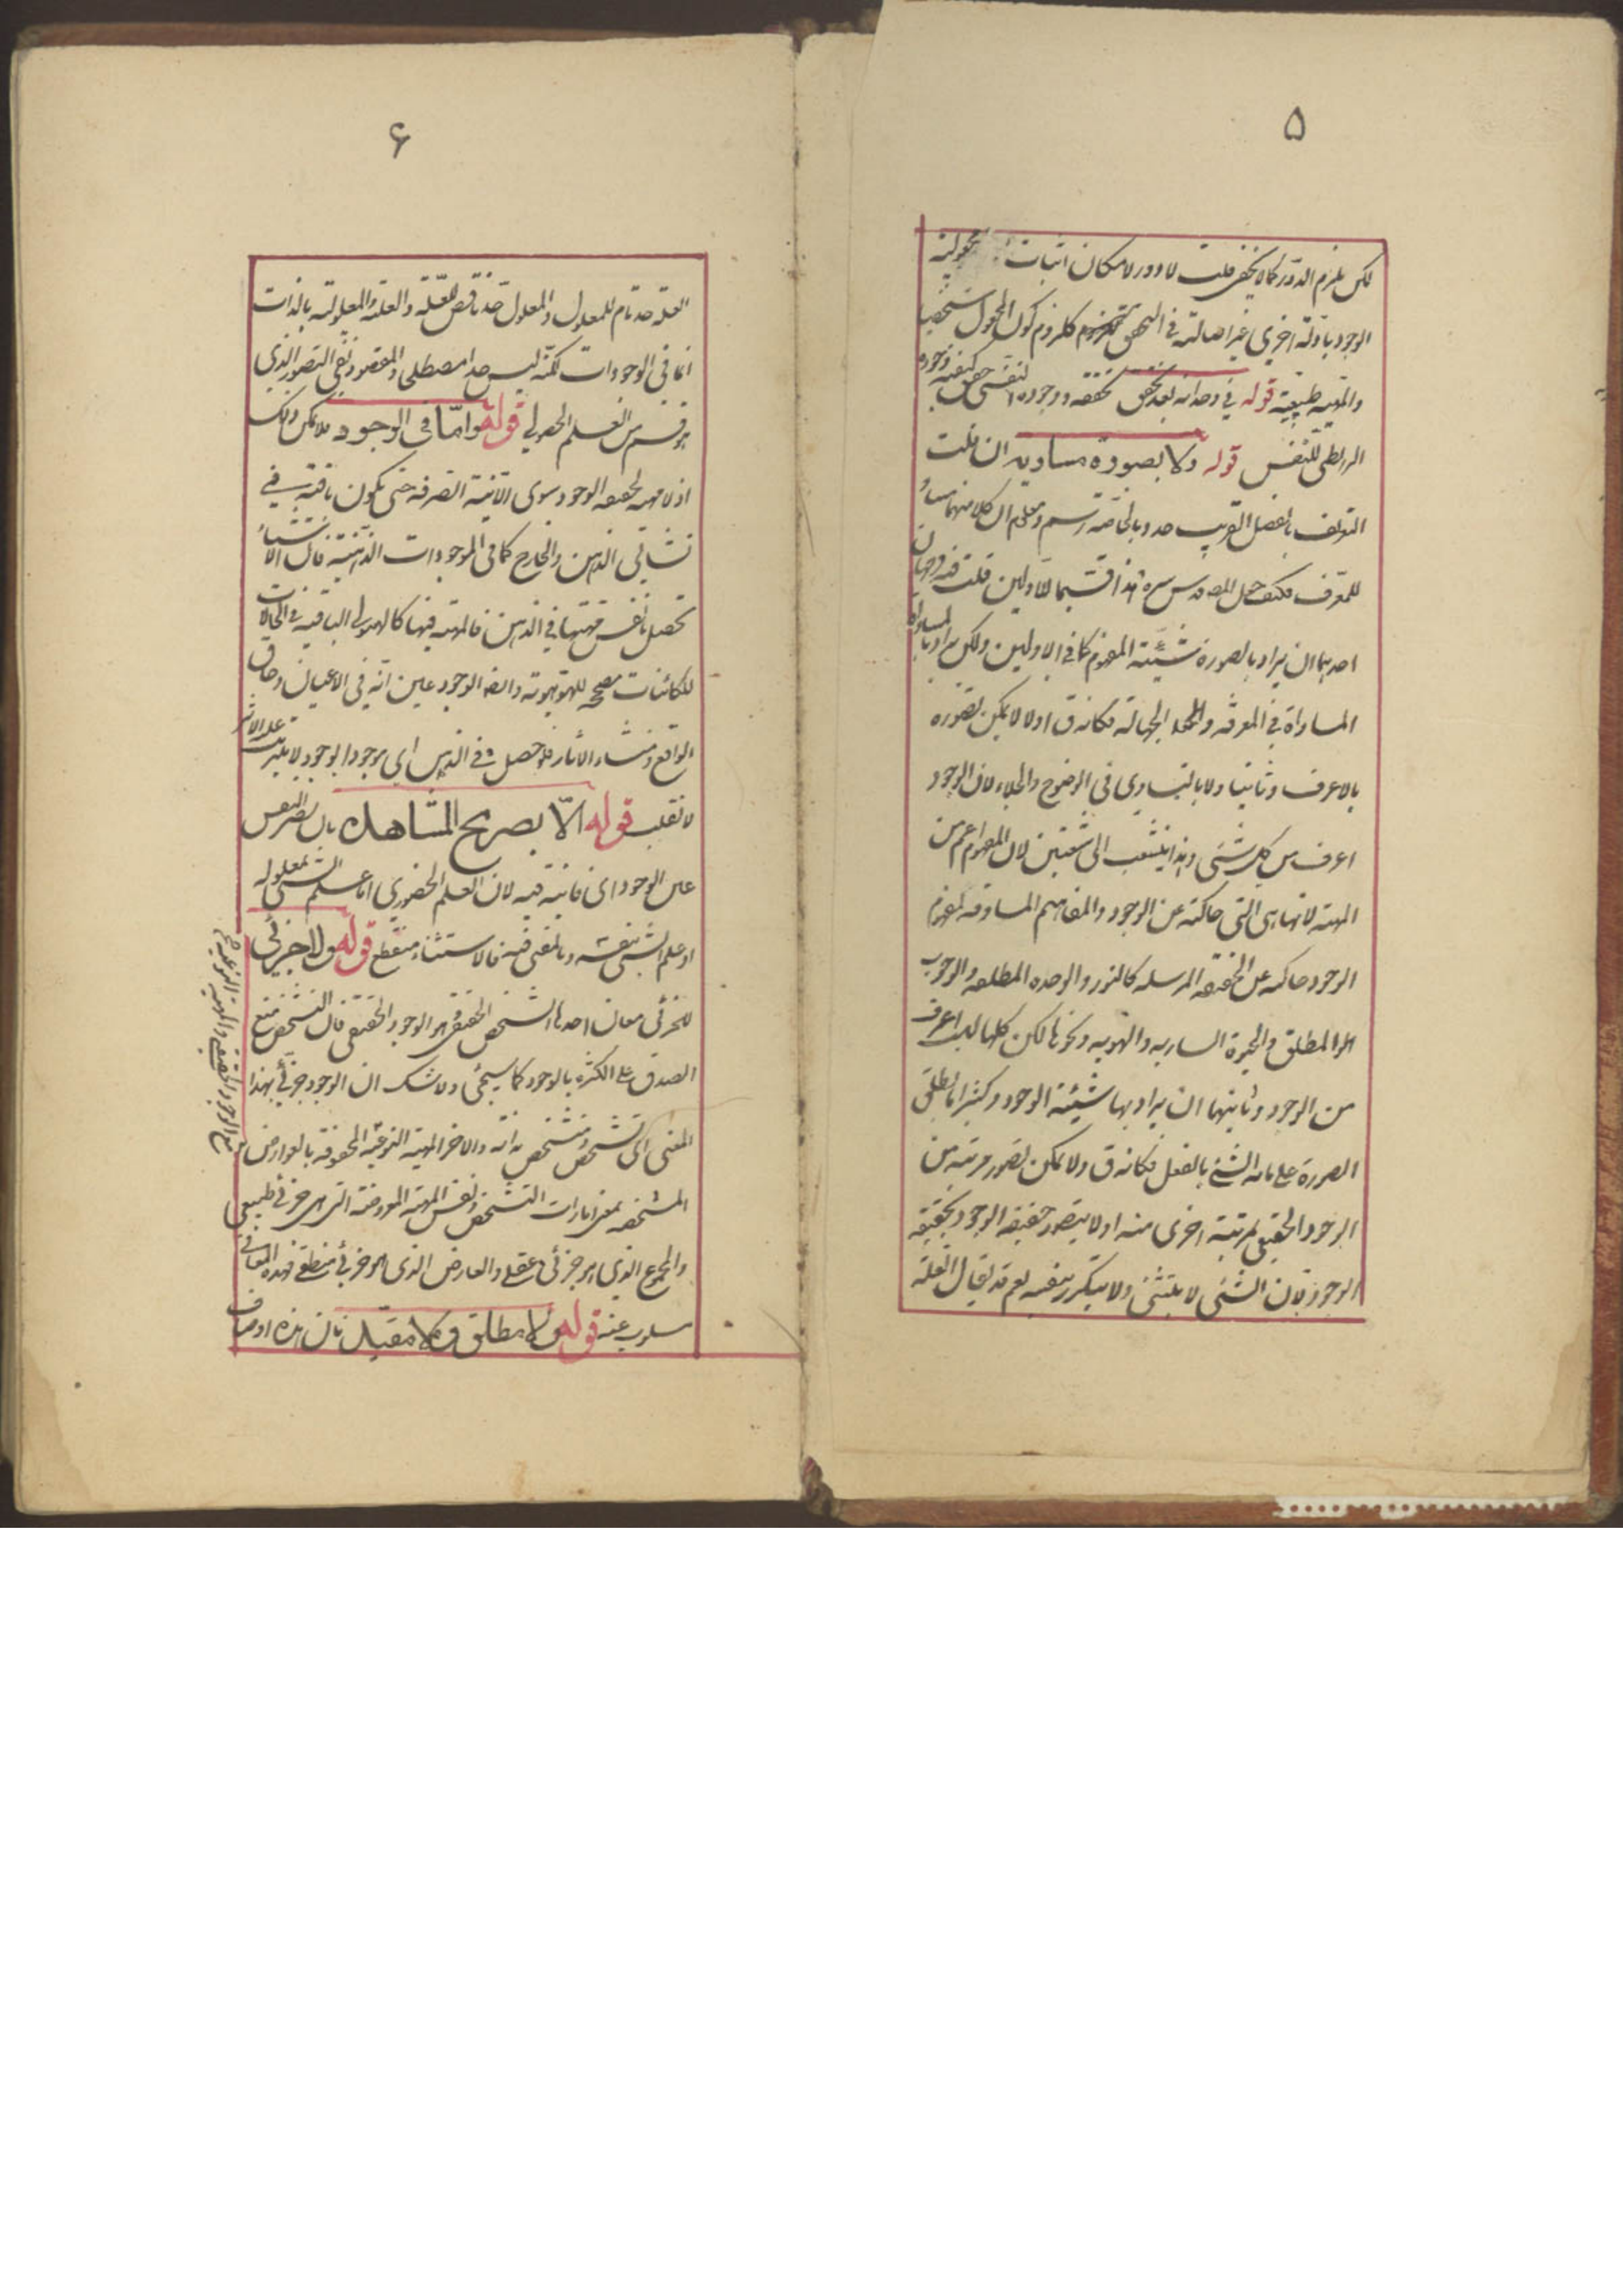 ۵
لكن يلزم الدور كما لا يخفى قلت لا دور لامكان اثبات مجعولية
الوجود بادلة اخرى غير اصالته في التحقق كلزوم كون المجعول شخصيا
والمهية طبيعية قوله في وحدانه بعد تحقق تحققه ووجوده لنفس وجوده
الرابطي للنفس قوله ولا بصورة مساوية ان قلت
التعريف بالفصل القريب حد وبالخاصة رسم ومعلوم ان كلا منهما مساو
للمعرف فكيف جعل المصنف قدس سره هذا قسيما للاولين قلت فيه وجهان
احدهما ان يراد بالصورة شيئية المفهوم كما في الاولين ولكن يراد بالمساواة
المساواة في المعرفة والجهالة فكانه ق اولا لا يمكن تصوره
بالاعرف وثانيا ولا بالتساوي في الوضوح والجلاء لان الوجود
اعرف من كل شئ وهذا ينشعب الى شعبتين لان المفهوم اعم من
المهية لانها هي التي حاكية عن الوجود والمفاهيم المساوقة لمفهوم
الوجود حاكية عن الحقيقة المرسلة كالنور والوحدة المطلقة والوجوب
المطلق والحيوة السارية والهوية ونحوها لكن كلها ليست اعرف
من الوجود وثانيهما ان يراد بها شيئية الوجود وكثيرا ما يطلق
الصورة على ما به الشئ بالفعل فكانه ق ولا يمكن تصور مرتبة من
الوجود الحقيقي بمرتبة اخرى منه اولا يتصور حقيقة الوجود بحقيقة
الوجود بان الشئ لا يتثنى ولا يتكرر بنفسه نعم قد يقال العلة
۶
العلة حد تام للمعلول والمعلول حد ناقص للعلة والعلية والمعلولية بالذات
انما في الوجودات لكنه ليس حدا مصطلحا والمقصود نفي التصور الذي
هو قسم من العلم الحصولي قوله واما في الوجود فلا يمكن ذلك
اذ لا مهية لحقيقة الوجود سوى الانية الصرفة حتى يكون باقية في
نشأتي الذهن والخارج كما في الموجودات الذهنية فان الاشياء
تحصل بانفس مهيتها في الذهن فالمهية فيها كالهيولى الباقية في الحالات
للكائنات مصححة للهوهوية وايضا الوجود عين انه في الاعيان وحاق
الواقع ومنشاء الاثار فلو حصل في الذهن اي وجود الوجود لا يترتب عليه الاثر
لانقلب قوله الا بصريح المشاهدة بان يصير النفس
عين الوجود اي فانية فيه لان العلم الحضوري اما علم الشئ بمعلوله
او علم الشئ بنفسه وبالمفنى فيه فالاستثناء منقطع قوله ولا جزئي
للجزئي معان احدها الشخص الحقيقي هو الوجود الحقيقي فان التشخص منع
الصدق على الكثرة بالوجود كما سيجئ ولا شك ان الوجود جزئي بهذا
المعنى اي تشخص ومتشخص بذاته والاخر المهية النوعية المحفوفة بالعوارض
المشخصة بمعنى امارات التشخص ونفس المهية المعروضة التي هي جزئي طبيعي
والمجموع الذي هو جزئي عقلي والعارض الذي هو جزئي منطقي فهذه المعاني
مسلوب عنه قوله ولا مطلق ولا مقيد فان هذه اوصاف
مع الوجود الحقيقي والمهية النوعية